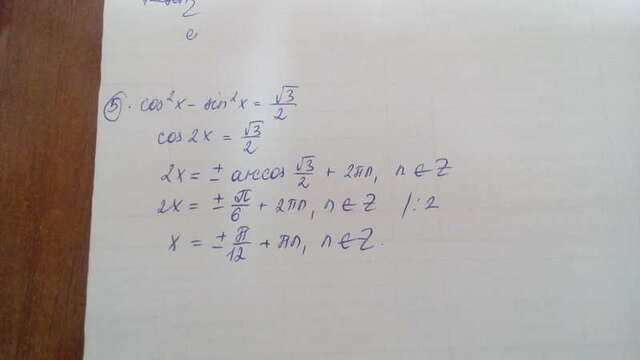 e
⑤. cos²x - sin²x = √3/2
cos 2x = √3/2
2x = ± arccos √3/2 + 2πn, n ∈ Z
2x = ± π/6 + 2πn, n ∈ Z /:2
x = ± π/12 + πn, n ∈ Z.